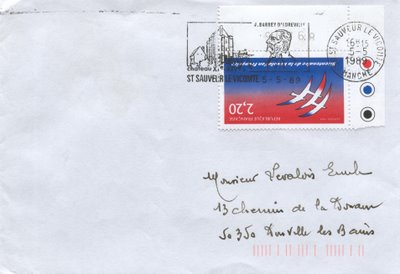 J. BARBEY D'AUREVILLY
Château
ST SAUVEUR LE VICOMTE
5-5-89
ST SAUVEUR LE VICOMTE
16H15
5-5
1989
MANCHE
Bicentenaire de la révolution française
2,20
REPUBLIQUE FRANÇAISE
Monsieur Levalois Emile
13 chemin de la Douane
50350 Donville les Bains